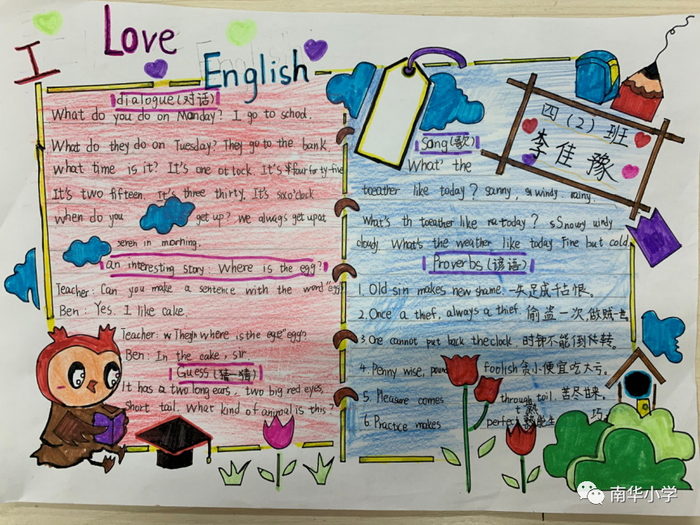 I Love
English
dialogue(对话)
What do you do on Monday? I go to school.
What do they do on Tuesday? They go to the bank
what time is it? It's one o'clock. It's four forty-five
It's two fifteen. It's three thirty. It's six o'clock
when do you get up? we always get up at
seven in morning.
an interesting story: Where is the egg?
Teacher: Can you make a sentence with the word "egg"
Ben: Yes. I like cake.
Teacher: where is the "egg"
Ben: In the cake, sir.
Guess(猜一猜)
It has a two long ears, two big red eyes,
Short tail. What kind of animal is this?
Sang(歌)
What' the
toeather like today? sunny, windy. rainy.
What's th toeather like today? Snowy windy
cloudy What's the weather like today Fine but cold
Proverbs(谚语)
1. Old sin makes new shame 一失足成千古恨。
2. Once a thef, always a thef. 偷盗一次,做贼一世
3. One cannot put back the clock 时钟不能倒转。
4. Penny wise, pound foolish 贪小便宜吃大亏
5. Pleasure comes through toil. 苦尽甘来。
6. Practice makes perfect 熟能生巧
四(2)班
李佳豫
南华小学